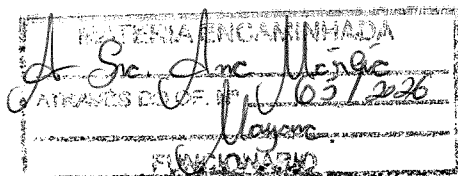 MATERIA ENCAMINHADA
A Sra. Ana
ATRAVÉS DO OF. Nº 03/2026
Mayara
FUNCIONARIO